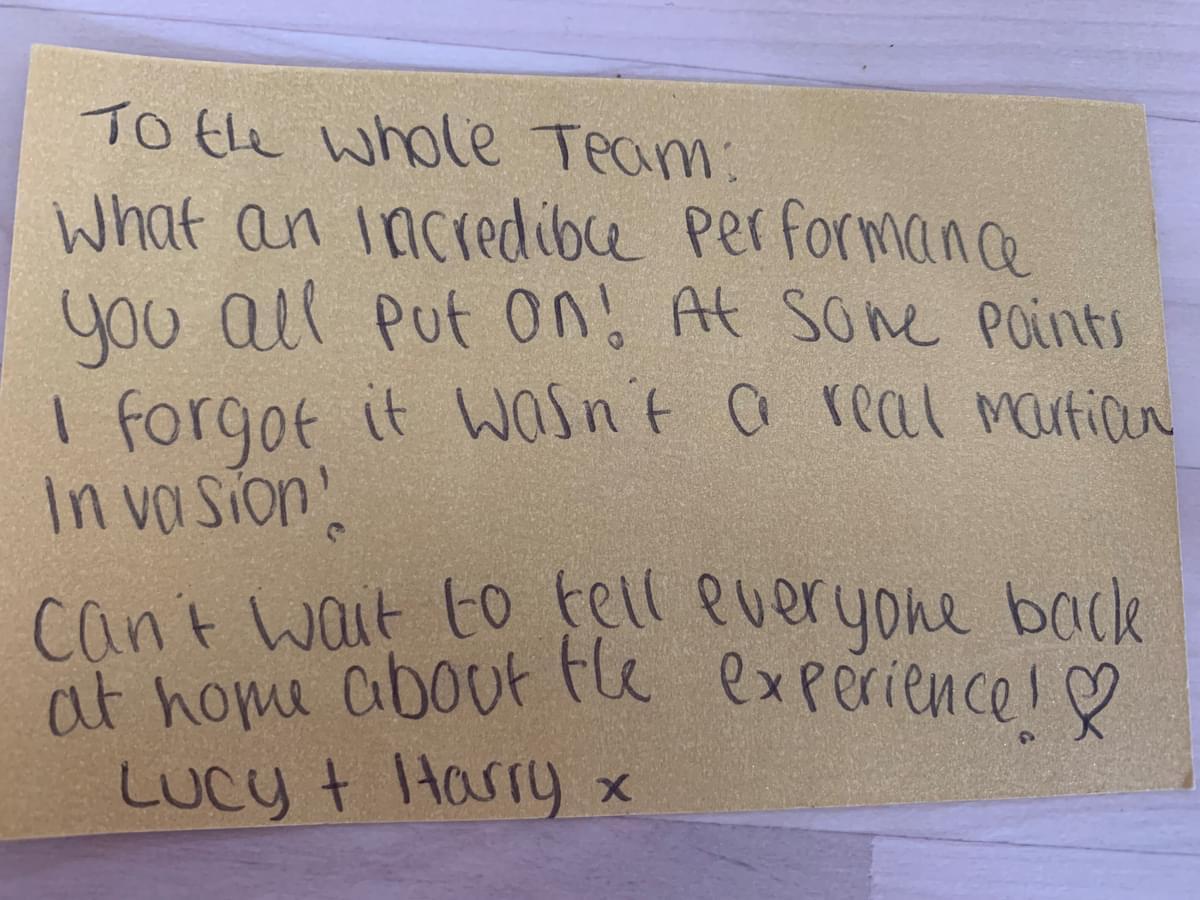 To the whole Team:
What an incredible performance
you all put on! At some points
I forgot it wasn't a real martian
Invasion!
Can't wait to tell everyone back
at home about the experience! ♡
Lucy + Harry x